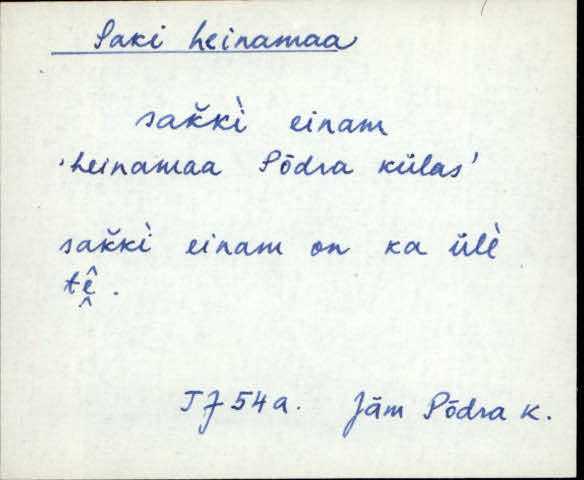 Saki heinamaa
sak̆kì einam
'heinamaa Põdra külas'
sak̆kì einam on ka ülè
tḙ̂.
TJ 54a. Jäm Põdra k.